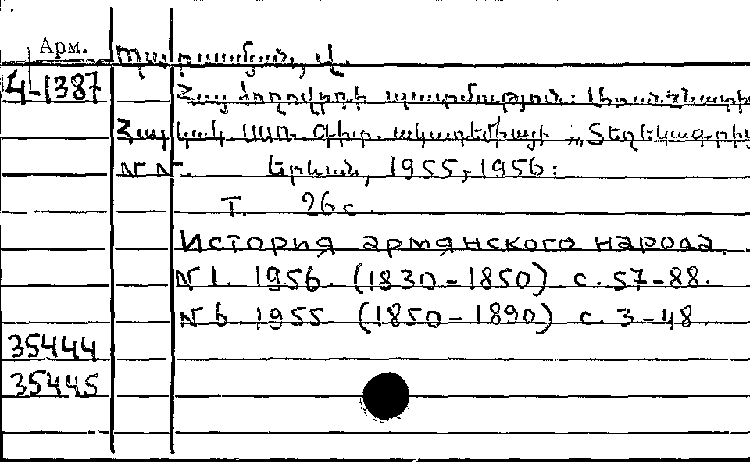 Арм.
Պարսամյան, Վ.
4-1387
Հայ ժողովրդի պատմություն:
Հայկական ՍՍՌ Գիտ. ակադեմիայի „Տեղեկագրի
NN.
Երևան, 1955, 1956:
Т. 26 с.
История армянского народа.
N 1. 1956. (1830-1850) с. 57-88.
N 6 1955 (1850-1890) с. 3-48.
35444
35445